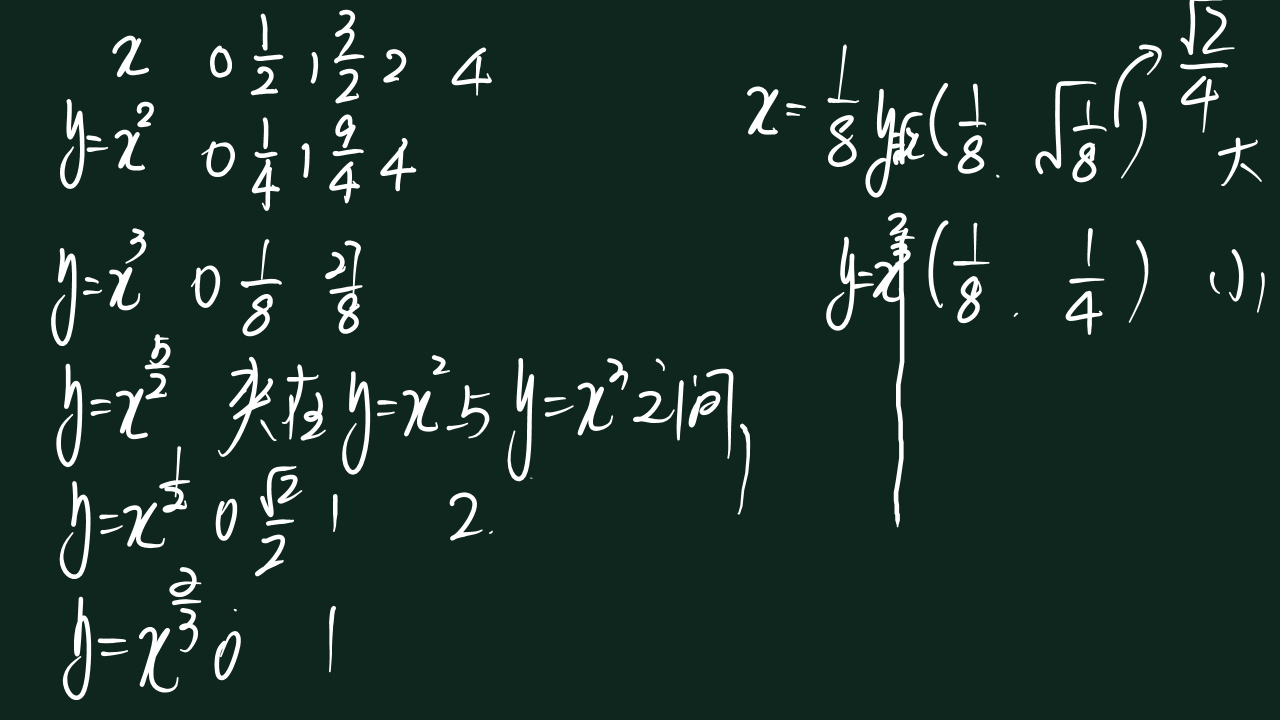 x 0 1/2 1 3/2 2 4
y=x² 0 1/4 1 9/4 4
y=x³ 0 1/8 27/8
y=x^(5/2) 夹在 y=x² 与 y=x³ 之间,
y=x^(1/2) 0 √2/2 1 2.
y=x^(2/3) 0 1
x= 1/8 y=√x (1/8, √(1/8)) √2/4 大
y=x^(2/3) (1/8, 1/4) 小